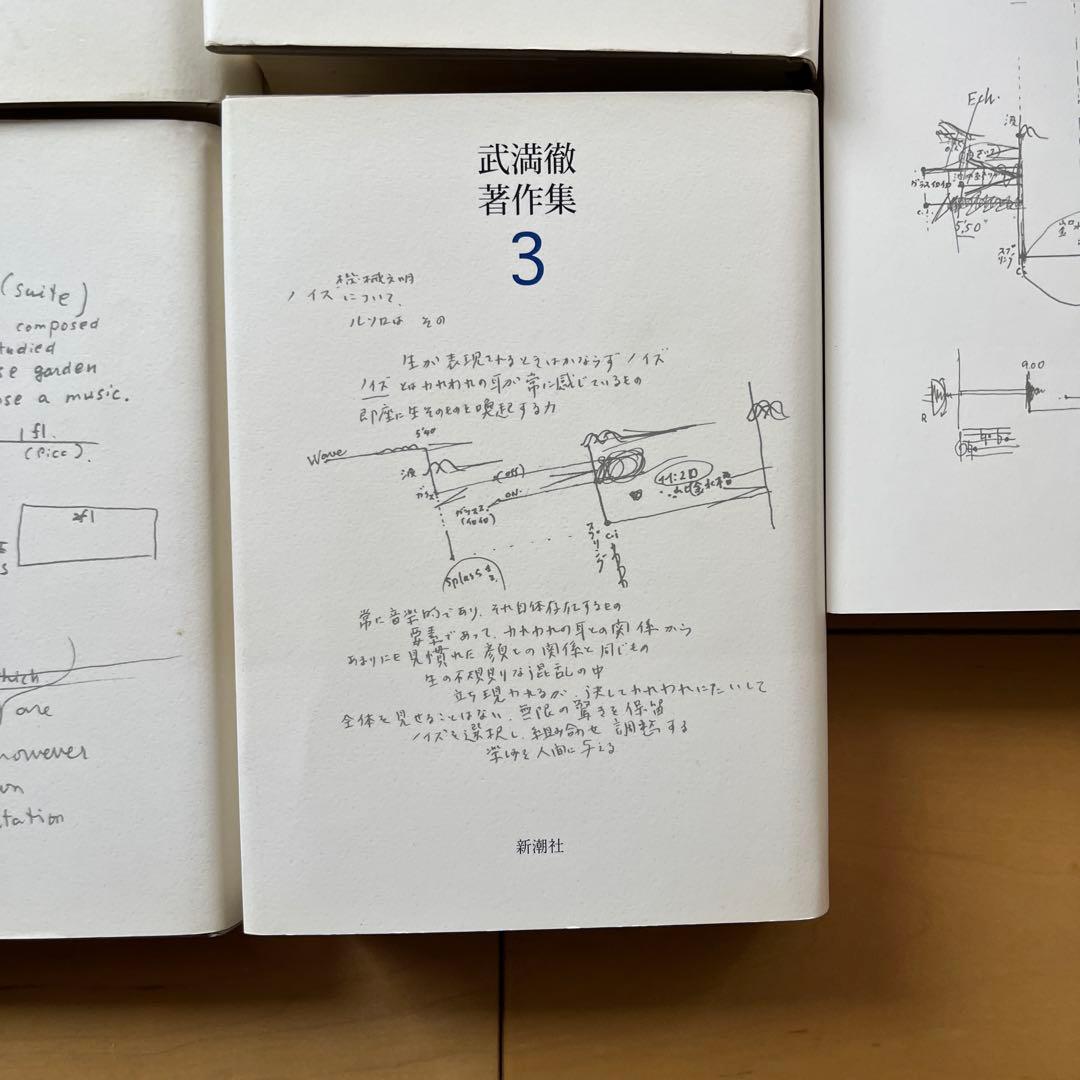 武満徹
著作集
3
機械文明
ノイズ について、
ルソロは その
生が 表現されるとそはかならず ノイズ
ノイズ とはわれわれの耳が 常に感じているもの
即座に 生そのものを 喚起する力
5'40
Wave
波
ガラス
(off)
ON
スプリング
C.i
splass
常に 音楽的であり、それ自体存在するもの
要素であって、われわれの耳との関係から
あまりにも 見慣れた 顔との関係と同じもの
生の不規則な混乱の中
立ち現われるが、決してわれわれにたいして
全体を見せることはない、無限の驚きを保留
ノイズを選択し、組み合わせ 調整する
楽しみを人間に与える
新潮社
(suite)
composed
studied
garden
a music.
1 fl.
(picc).
2fl
which
are
however
tation
Ech.
波
5'50"
スプリング
C.i
900
R